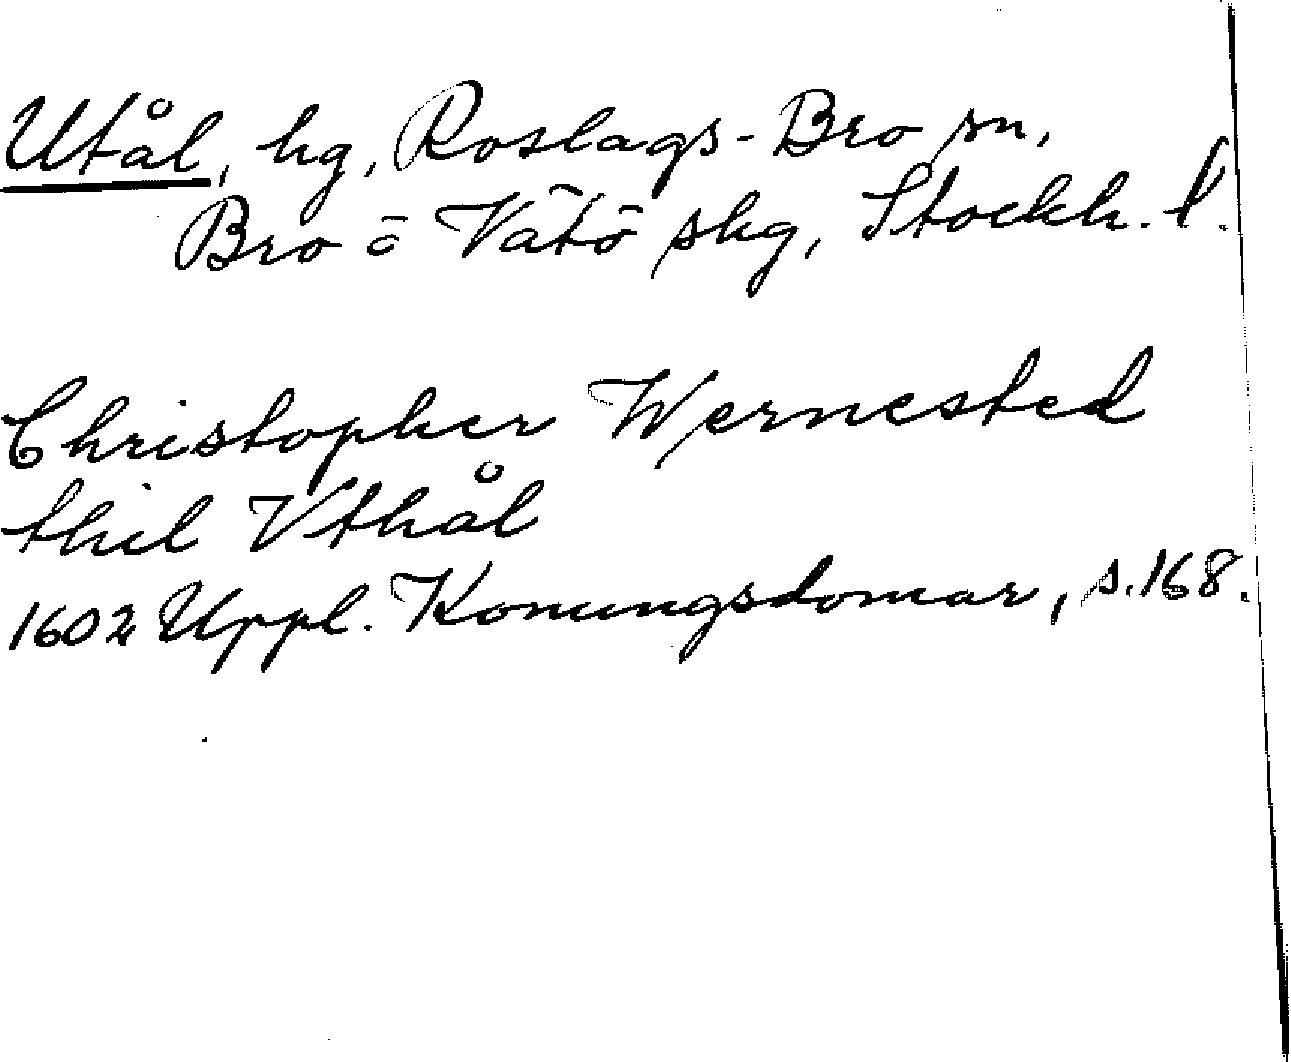 Utål, hg, Roslags-Bro sn,
Bro o Vätö skg, Stockh. l.
Christopher Wernested
thil Vthål
1602 Uppl. Konungsdomar, s. 168.